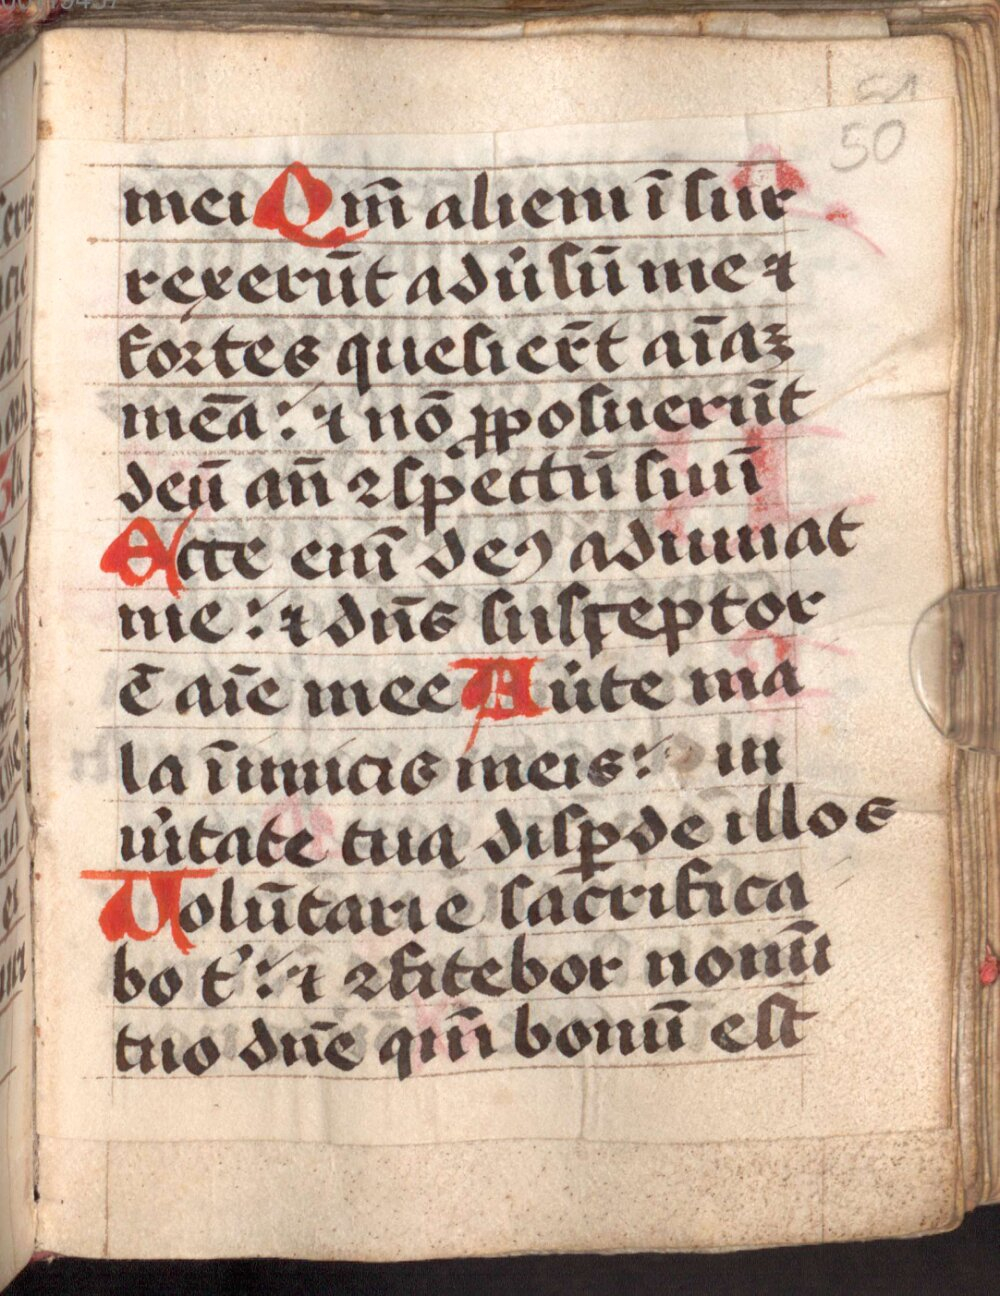 50
mei Qm̄ alieni ī sur
rexerūt adūsū me ⁊
fortes quesier̄t aīaꝫ
meā : ⁊ nō ꝓposuerūt
deū an̄ ꝯspectū suū
Ecce enī deꝰ adiuuat
me : ⁊ dn̄s susceptor
ē aīe mee Aūte ma
la īimicis meis : in
ūitate tua disꝑde illos
Uolūtarie sacrifica
bo t' : ⁊ ꝯfitebor nomī
tuo dn̄e qm̄ bonū est